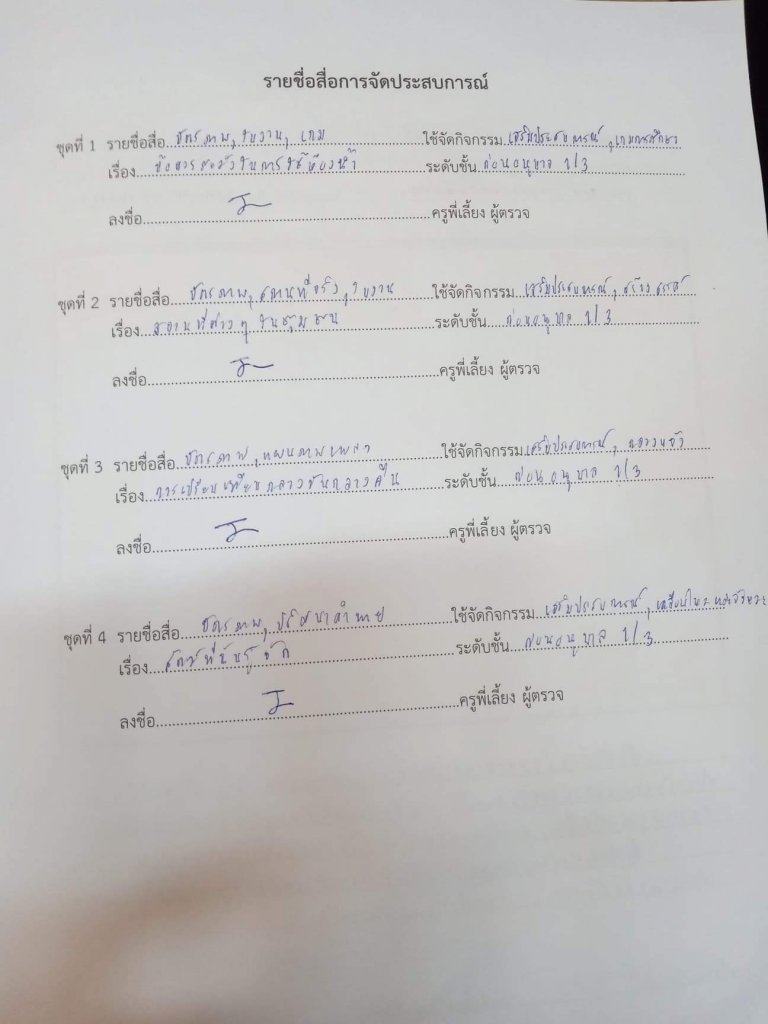 รายชื่อสื่อการจัดประสบการณ์
ชุดที่ 1 รายชื่อสื่อ บัตรภาพ, ใบงาน, เกม ใช้จัดกิจกรรม เสริมประสบการณ์, เกมการศึกษา
เรื่อง ข้อควรระวังในการใช้ห้องน้ำ ระดับชั้น ก่อนอนุบาล 1/3
ลงชื่อ ครูพี่เลี้ยง ผู้ตรวจ
ชุดที่ 2 รายชื่อสื่อ บัตรภาพ, สถานที่จริง, ใบงาน ใช้จัดกิจกรรม เสริมประสบการณ์, สร้างสรรค์
เรื่อง สถานที่ต่างๆ ในชุมชน ระดับชั้น ก่อนอนุบาล 1/3
ลงชื่อ ครูพี่เลี้ยง ผู้ตรวจ
ชุดที่ 3 รายชื่อสื่อ บัตรภาพ, แผนภาพเพลง ใช้จัดกิจกรรม เสริมประสบการณ์, กลางแจ้ง
เรื่อง การเปรียบเทียบกลางวันกลางคืน ระดับชั้น ก่อนอนุบาล 1/3
ลงชื่อ ครูพี่เลี้ยง ผู้ตรวจ
ชุดที่ 4 รายชื่อสื่อ บัตรภาพ, ปริศนาคำทาย ใช้จัดกิจกรรม เสริมประสบการณ์, เคลื่อนไหวและจังหวะ
เรื่อง สัตว์ที่ฉันรู้จัก ระดับชั้น ก่อนอนุบาล 1/3
ลงชื่อ ครูพี่เลี้ยง ผู้ตรวจ